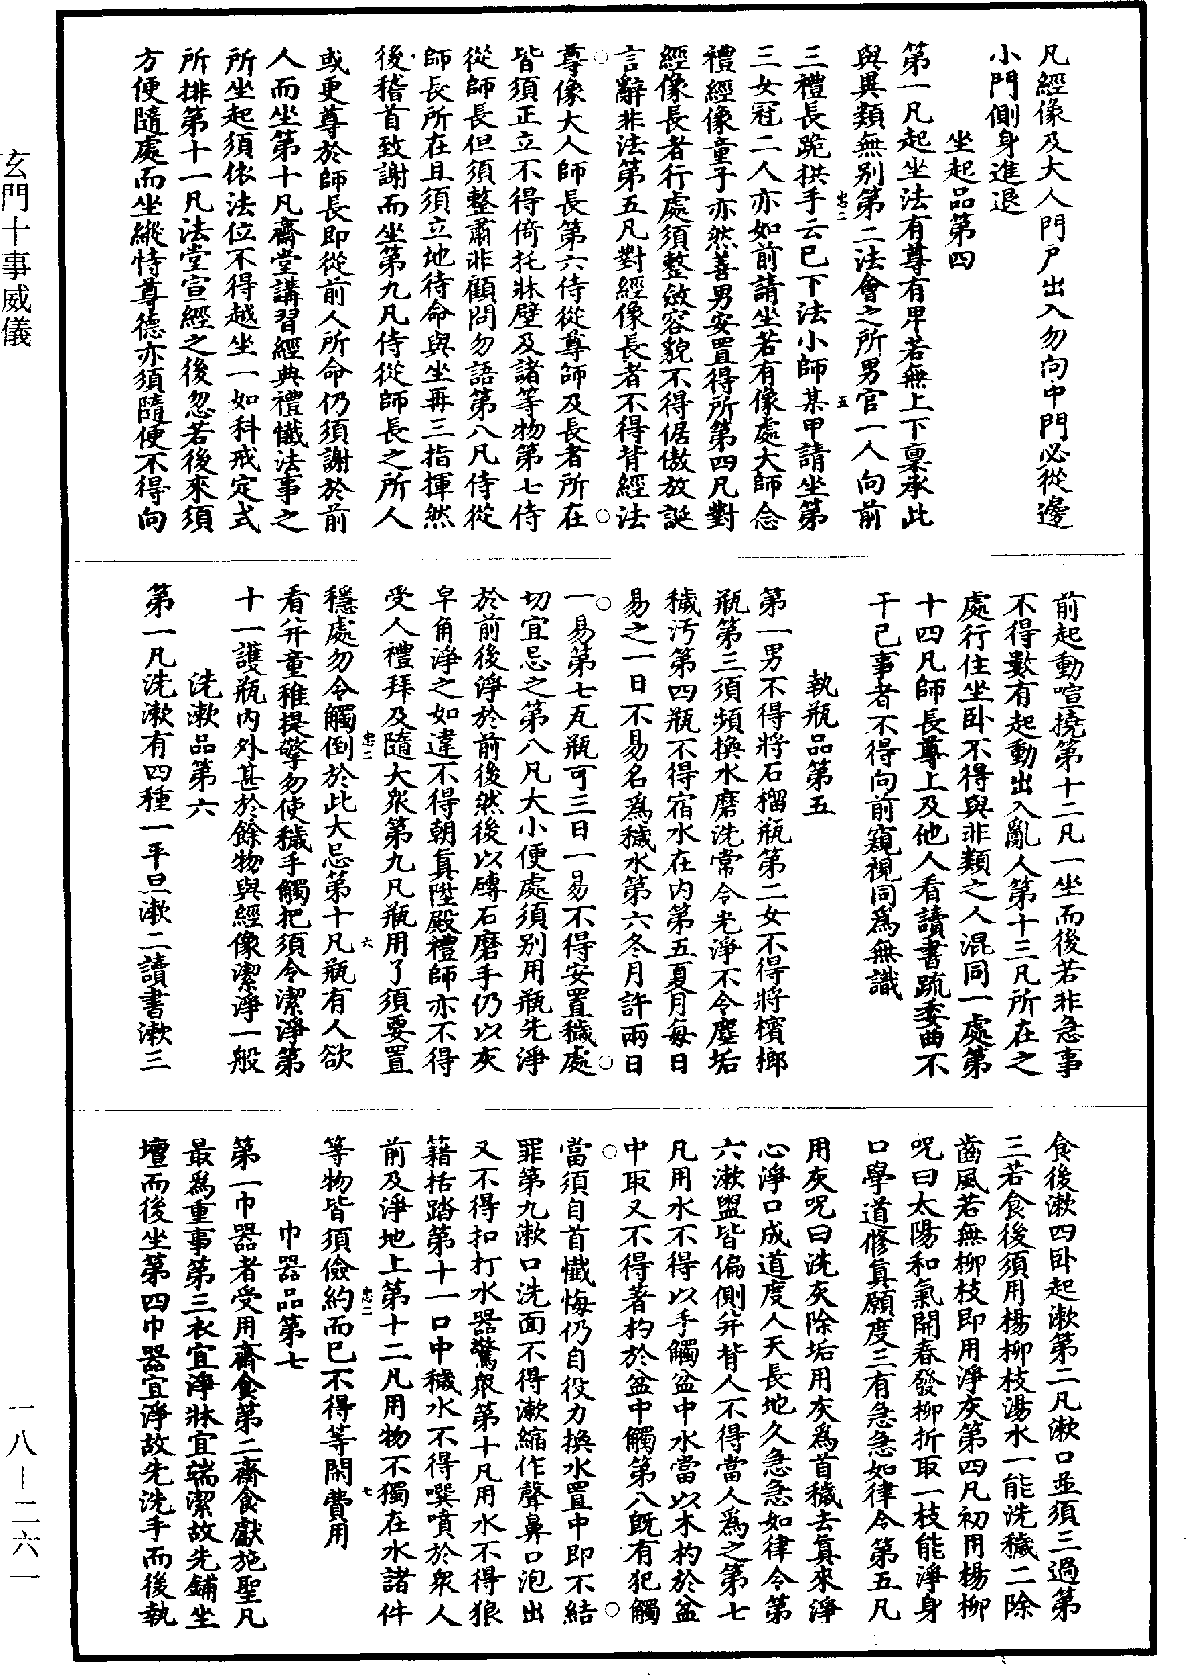 凡經像及大人門戶出入勿向中門必從邊
小門側身進退
坐起品第四
第一凡起坐法有尊有卑若無上下稟承此
與異類無別第二法會之所男官一人向前
三禮長跪拱手云已下法小師某甲請坐第
三女冠二人亦如前請坐若有像處大師念
禮經像童子亦然善男安置得所第四凡對
經像長者行處須整斂容貌不得倨傲放誕
言辭非法第五凡對經像長者不得背經法
尊像大人師長第六侍從尊師及長者所在
皆須正立不得倚托牀壁及諸等物第七侍
從師長但須整肅非顧問勿語第八凡侍從
師長所在且須立地待命與坐再三指揮然
後稽首致謝而坐第九凡侍從師長之所人
或更尊於師長即從前人所命仍須謝於前
人而坐第十凡齋堂講習經典禮懺法事之
所坐起須依法位不得越坐一如科戒定式
所排第十一凡法堂宣經之後忽若後來須
方便隨處而坐縱恃尊德亦須隨便不得向
前起動喧撓第十二凡一坐而後若非急事
不得數有起動出入亂人第十三凡所在之
處行住坐臥不得與非類之人混同一處第
十四凡師長尊上及他人看讀書疏委曲不
干己事者不得向前窺視同為無識
執瓶品第五
第一男不得將石榴瓶第二女不得將檳榔
瓶第三須頻換水磨洗常令光淨不令塵垢
穢汚第四瓶不得宿水在內第五夏月每日
易之一日不易名為穢水第六冬月許兩日
一易第七瓦瓶可三日一易不得安置穢處
切宜忌之第八凡大小便處須別用瓶先淨
於前後淨於前後然後以磚石磨手仍以灰
皁角淨之如違不得朝真陞殿禮師亦不得
受人禮拜及隨大衆第九凡瓶用了須要置
穩處勿令觸倒於此大忌第十凡瓶有人欲
看并童稚提挈勿使穢手觸把須令潔淨第
十一護瓶內外甚於餘物與經像潔淨一般
洗漱品第六
第一凡洗漱有四種一平旦漱二讀書漱三
食後漱四臥起漱第二凡漱口並須三過第
三若食後須用楊柳枝湯水一能洗穢二除
齒風若無柳枝即用淨灰第四凡初用楊柳
呪曰太陽和氣開春發柳折取一枝能淨身
口學道修真願度三有急急如律令第五凡
用灰呪曰洗灰除垢用灰為首穢去真來淨
心淨口成道度人天長地久急急如律令第
六漱盥皆偏側并背人不得當人為之第七
凡用水不得以手觸盆中水當以木杓於盆
中取又不得著杓於盆中觸第八既有犯觸
當須自首懺悔仍自役力換水置中即不結
罪第九漱口洗面不得漱縮作聲鼻口泡出
又不得扣打水器驚衆第十凡用水不得狼
籍拈踏第十一口中穢水不得噀噴於衆人
前及淨地上第十二凡用物不獨在水諸件
等物皆須儉約而已不得等閑費用
巾器品第七
第一巾器者受用齋食第二齋食獻施聖凡
最為重事第三衣宜淨牀宜端潔故先鋪坐
壇而後坐第四巾器宜淨故先洗手而後執
忠二
五
忠二
六
忠二
七
玄門十事威儀
一八—二六一